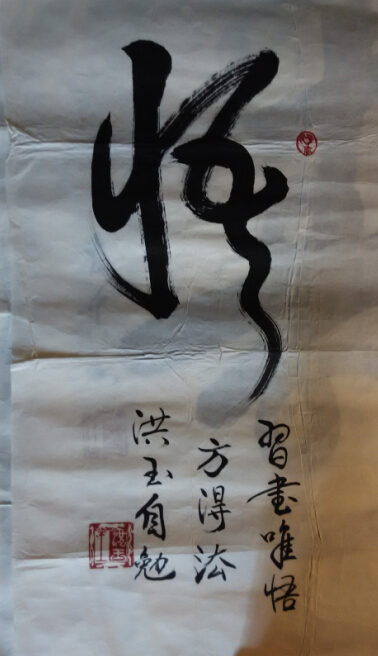 悟
習書唯悟
方得法
洪玉自勉